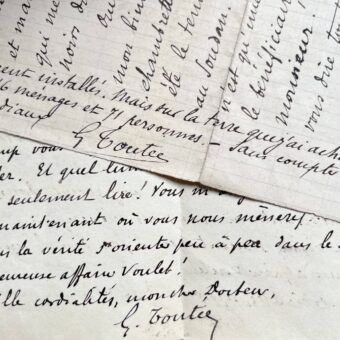 et ma
qui me
hoirs d
mon bin
chambrett
été le ter
au Soudan.
n'est qu'une
le bénéficiair
monsieur!
vous dire tou
ent installés. Mais sur la terre que j'ai ach
6 ménages et 71 personnes. – Sans compte
diaux
G Toutée
up vou
er. Et quel
seulement lire! Vous m'
maintenant où vous nous mènerez
la vérité s'oriente peu à peu dans le
eureuse affaire Voulet!
lle cordialités, mon cher Docteur,
G. Toutée